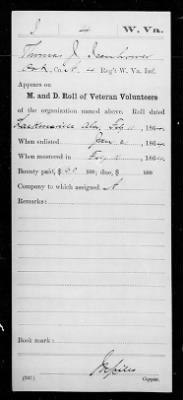 I 4 W. Va.
Thomas J. Isenhower
Co. A, 4 Reg't W. Va. Inf.
Appears on
M. and D. Roll of Veteran Volunteers
of the organization named above. Roll dated
Larkinsville Ala, Feb 11, 186
When enlisted Jan 2, 186
When mustered in Feby, 186
Bounty paid, $ 100; due, $ 100
Company to which assigned A
Remarks:
Book mark:
Copyist.